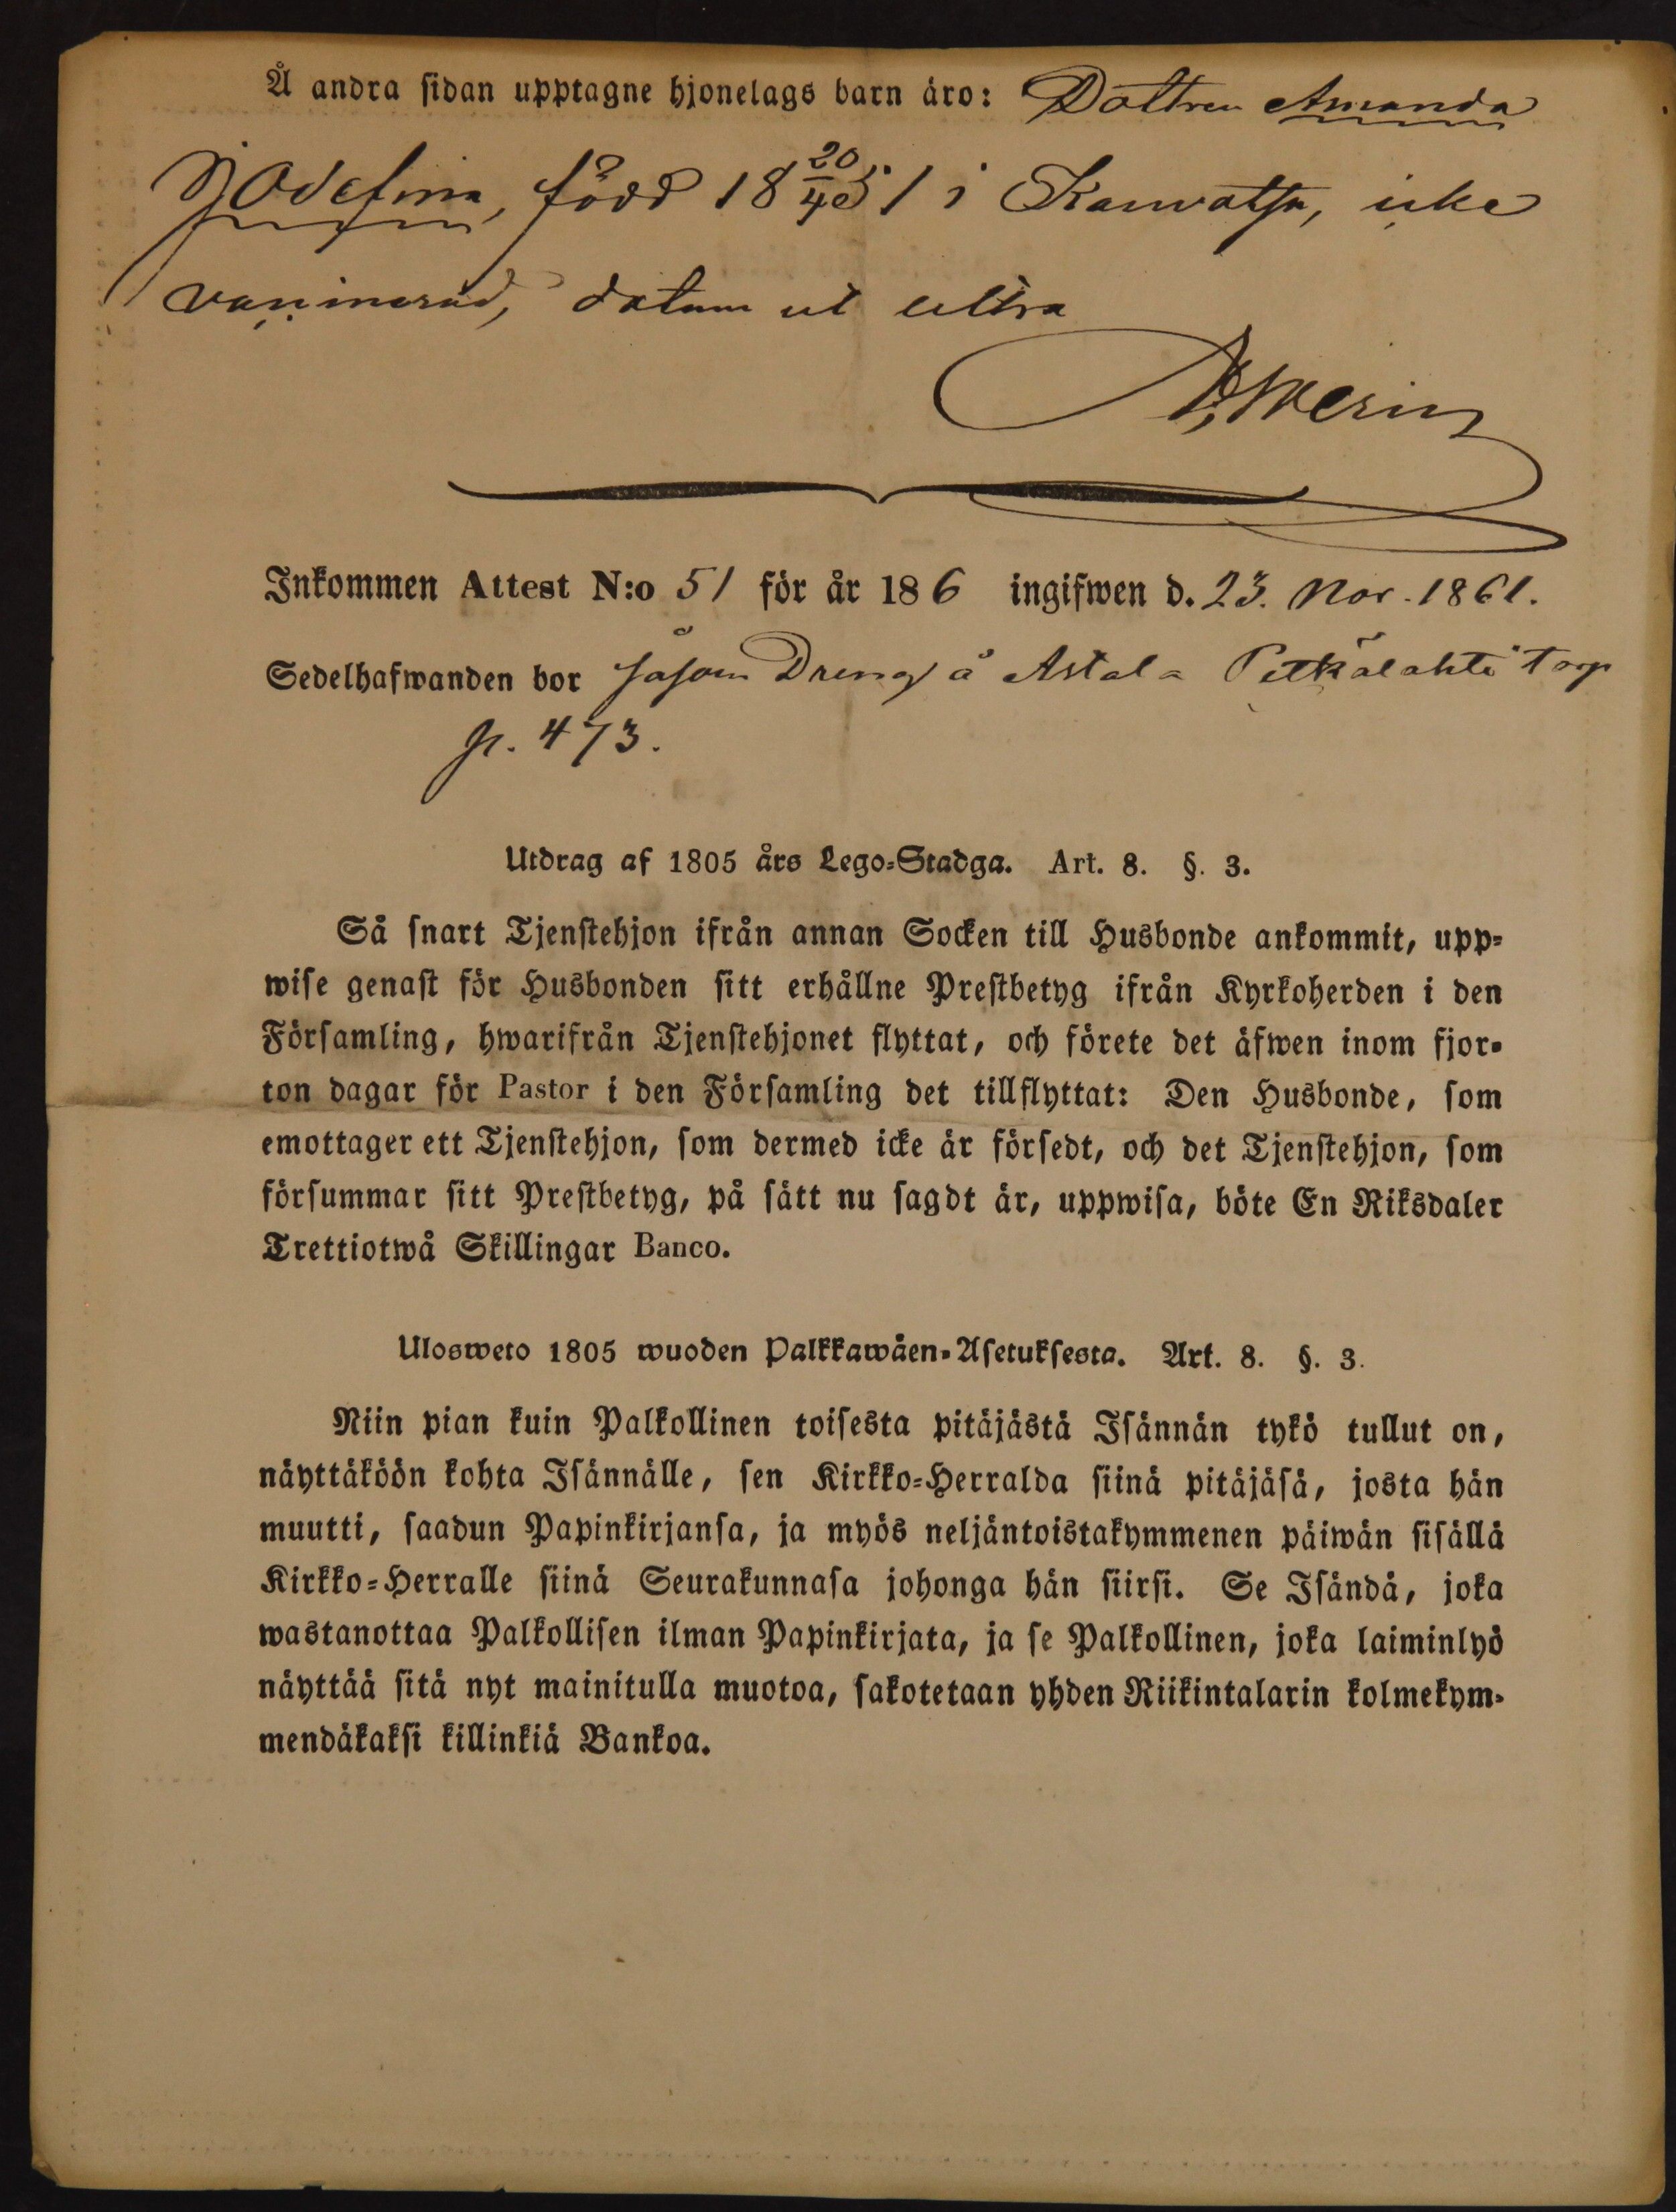 Å andra sidan upptagne hjonelags barn äro: Dottren Amanda
Josefina, född 18 20/4 51 i Kauvatsa, icke
vaccinerad, datum ut ultra
Inkommen Attest N:o 51 för år 186 6 ingifwen d. 23. Nov. 1861.
Sedelhafwanden bor såsom Dreng å Astala Pitkälahti torp
p. 473.
Utdrag af 1805 års Lego-Stadga. Art. 8. §. 3.
Så snart Tjenstehjon ifrån annan Socken till Husbonde ankommit, upp-
wise genast för Husbonden sitt erhållne Prestbetyg ifrån Kyrkoherden i den
Församling, hwarifrån Tjenstehjonet flyttat, och förete det äfwen inom fjor-
ton dagar för Pastor i den Församling det tillflyttat: Den Husbonde, som
emottager ett Tjenstehjon, som dermed icke är försedt, och det Tjenstehjon, som
försummar sitt Prestbetyg, på sätt nu sagdt är, uppwisa, böte En Riksdaler
Trettiotwå Skillingar Banco.
Ulosweto 1805 wuoden Palkkawäen-Asetuksesta. Art. 8. §. 3.
Niin pian kuin Palkollinen toisesta pitäjästä Isännän tykö tullut on,
näyttäköön kohta Isännälle, sen Kirkko-Herralda siinä pitäjäsä, josta hän
muutti, saadun Papinkirjansa, ja myös neljäntoistakymmenen päiwän sisällä
Kirkko-Herralle siinä Seurakunnasa johonga hän siirsi. Se Isändä, joka
wastanottaa Palkollisen ilman Papinkirjata, ja se Palkollinen, joka laiminlyö
näyttää sitä nyt mainitulla muotoa, sakotetaan yhden Riikintalarin kolmekym-
mendäkaksi killinkiä Bankoa.